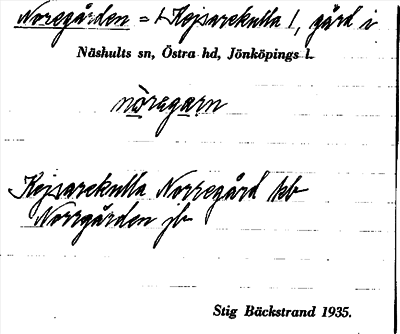 Noregården = Kejsarekulla 1, gård i
Näshults sn, Östra hd, Jönköpings l.
nòregarn
Kejsarekulla Norregård kb
Norrgården jb
Stig Bäckstrand 1935.